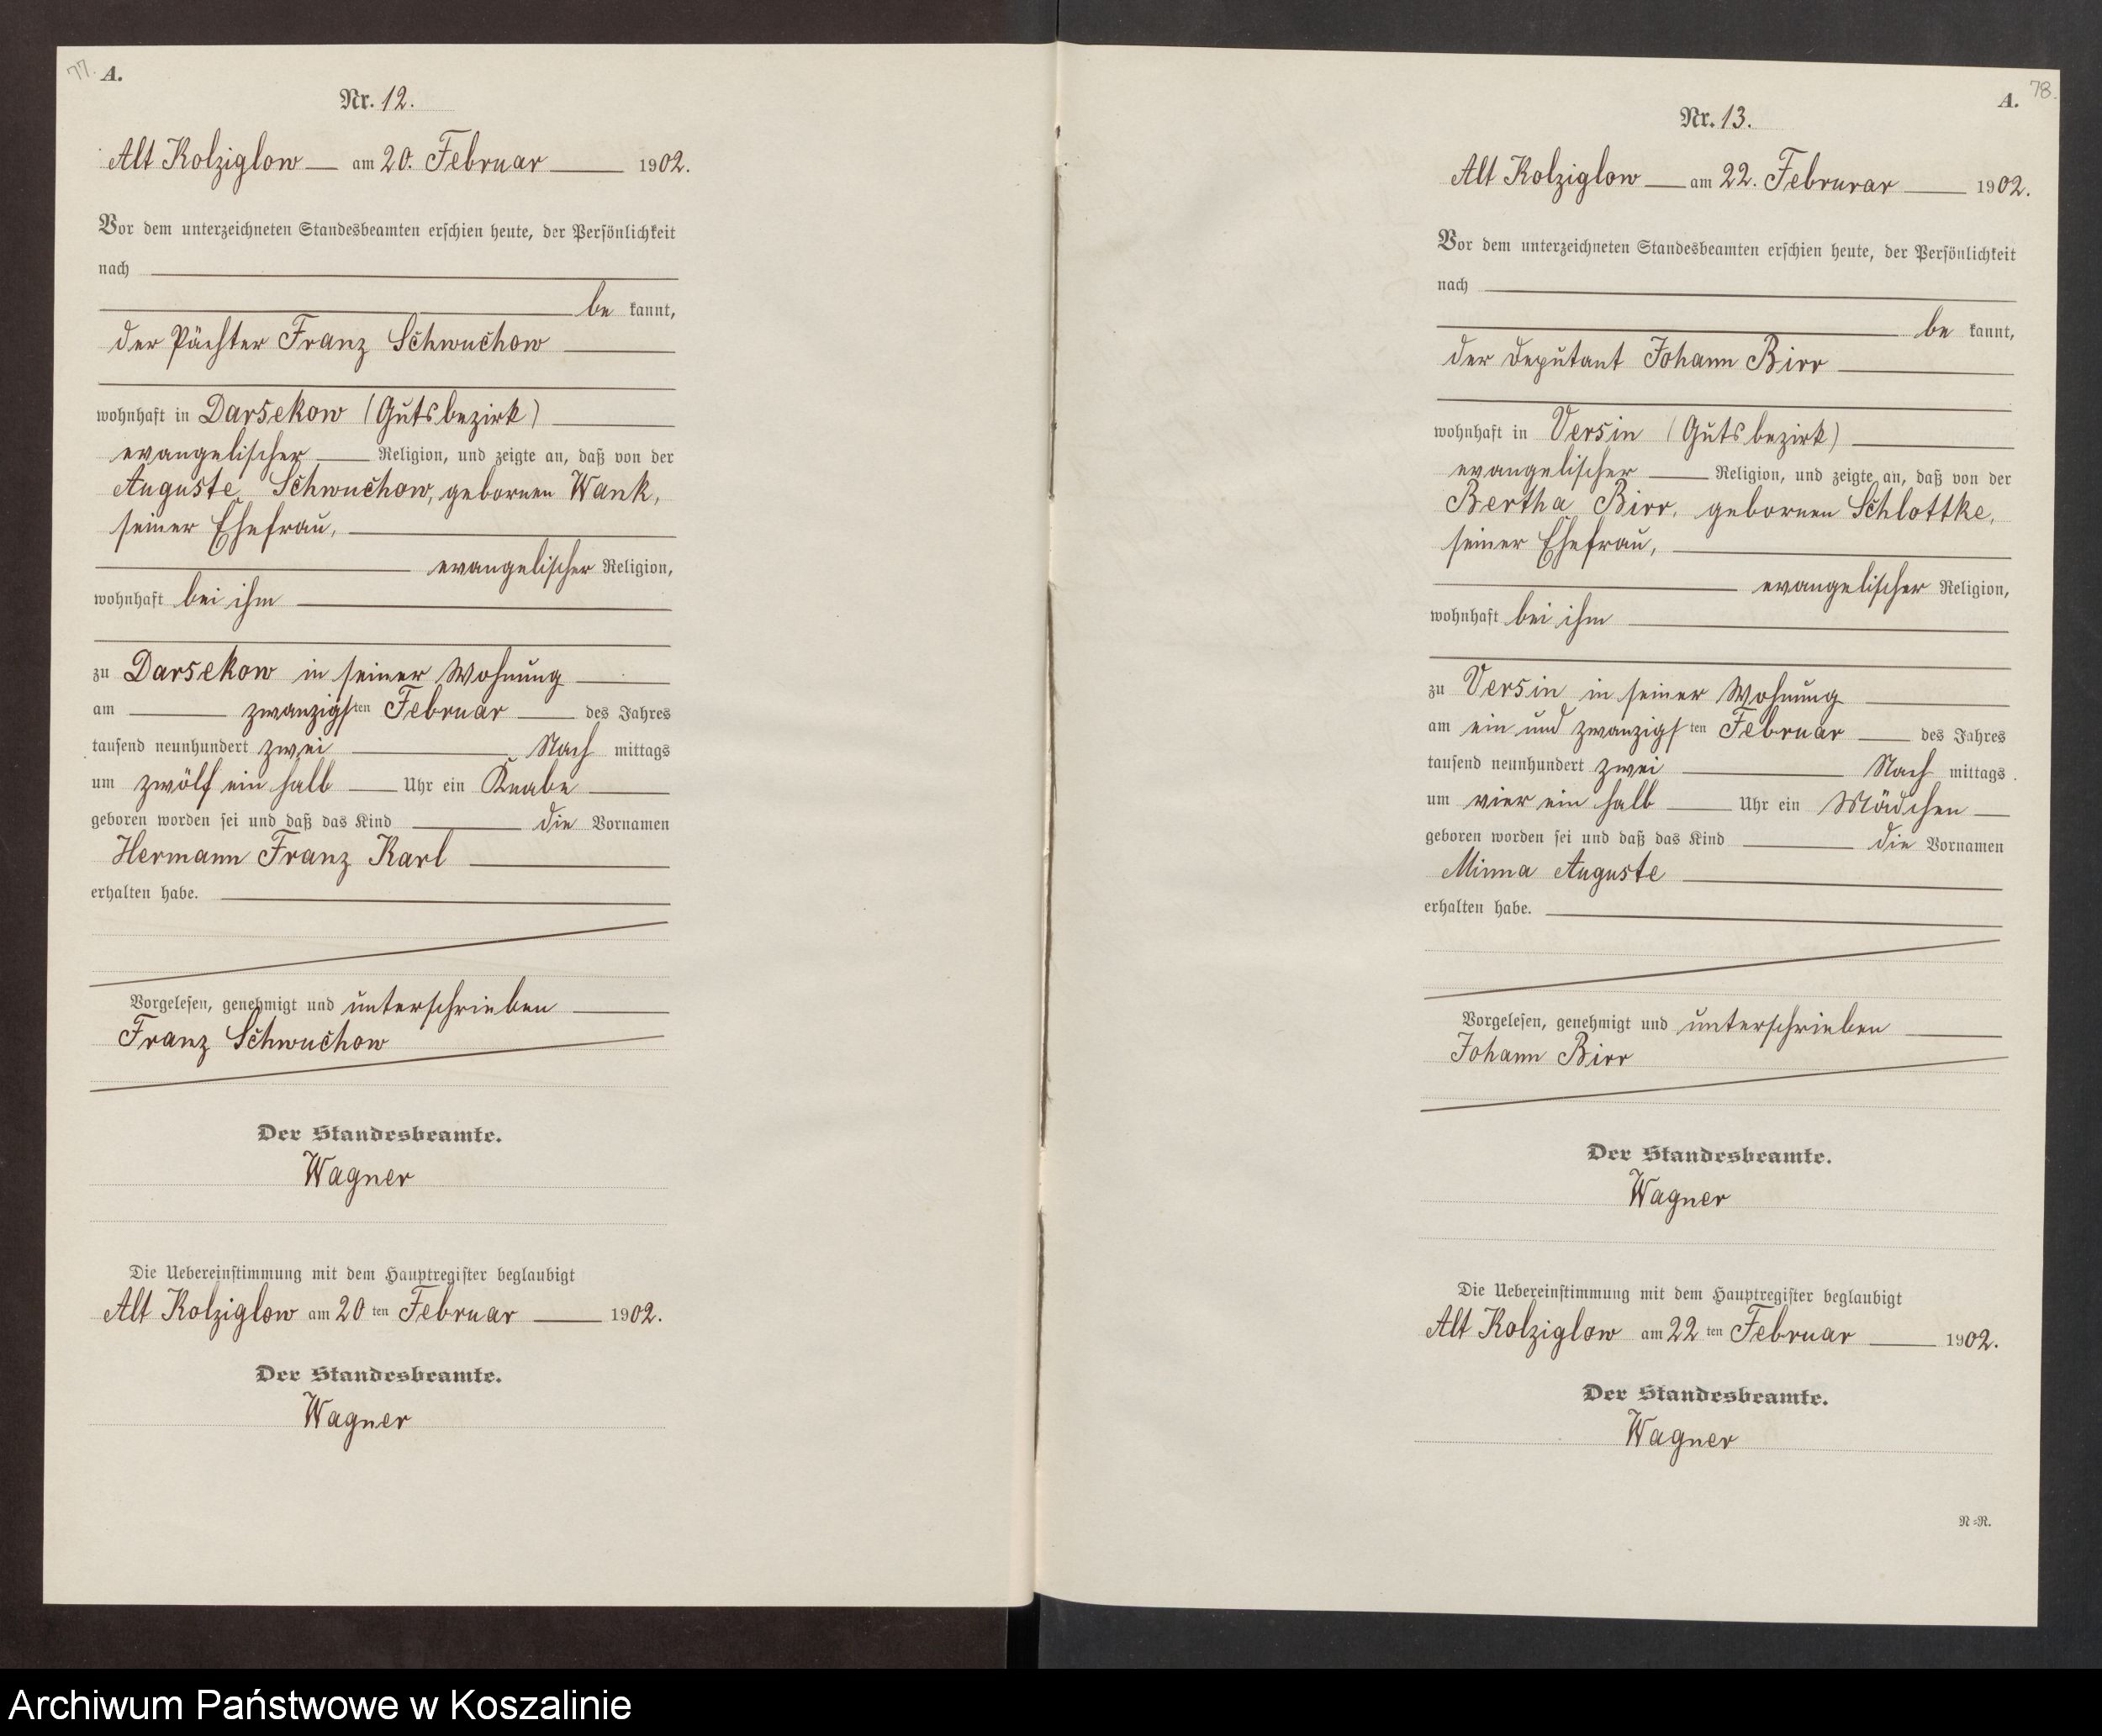 77.
A.
Nr. 12.
Alt Kolziglow am 20. Februar 1902.
Vor dem unterzeichneten Standesbeamten erschien heute, der Persönlichkeit
nach
be kannt,
der Pächter Franz Schwuchow
wohnhaft in Darsekow (Gutsbezirk)
evangelischer Religion, und zeigte an, daß von der
Auguste Schwuchow, gebornen Wank,
seiner Ehefrau,
evangelischer Religion,
wohnhaft bei ihm
zu Darsekow in seiner Wohnung
am zwanzigsten Februar des Jahres
tausend neunhundert zwei Nach mittags
um zwölf ein halb Uhr ein Knabe
geboren worden sei und daß das Kind die Vornamen
Hermann Franz Karl
erhalten habe.
Vorgelesen, genehmigt und unterschrieben
Franz Schwuchow
Der Standesbeamte.
Wagner
Die Uebereinstimmung mit dem Hauptregister beglaubigt
Alt Kolziglow am 20 ten Februar 1902.
Der Standesbeamte.
Wagner
78.
A.
Nr. 13.
Alt Kolziglow am 22. Februrar 1902.
Vor dem unterzeichneten Standesbeamten erschien heute, der Persönlichkeit
nach
be kannt,
der Deputant Johann Birr
wohnhaft in Versin (Gutsbezirk)
evangelischer Religion, und zeigte an, daß von der
Bertha Birr, gebornen Schlottke,
seiner Ehefrau,
evangelischer Religion,
wohnhaft bei ihm
zu Versin in seiner Wohnung
am ein und zwanzigsten Februar des Jahres
tausend neunhundert zwei Nach mittags
um vier ein halb Uhr ein Mädchen
geboren worden sei und daß das Kind die Vornamen
Minna Auguste
erhalten habe.
Vorgelesen, genehmigt und unterschrieben
Johann Birr
Der Standesbeamte.
Wagner
Die Uebereinstimmung mit dem Hauptregister beglaubigt
Alt Kolziglow am 22 ten Februar 1902.
Der Standesbeamte.
Wagner
N=R.
Archiwum Państwowe w Koszalinie